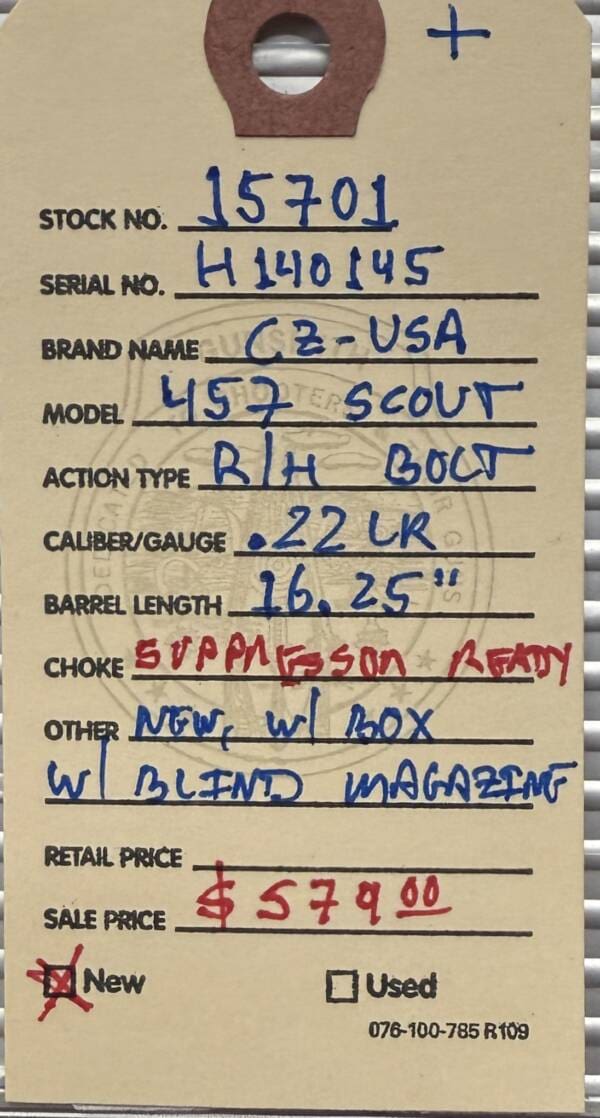 +
STOCK NO. 15701
SERIAL NO. H140145
BRAND NAME CZ-USA
MODEL 457 SCOUT
ACTION TYPE R/H BOLT
CALIBER/GAUGE .22 LR
BARREL LENGTH 16.25"
CHOKE SUPPRESSOR READY
OTHER NEW, W/ BOX
W/ BLIND MAGAZINE
RETAIL PRICE
SALE PRICE $579.00
New Used
076-100-785 R109